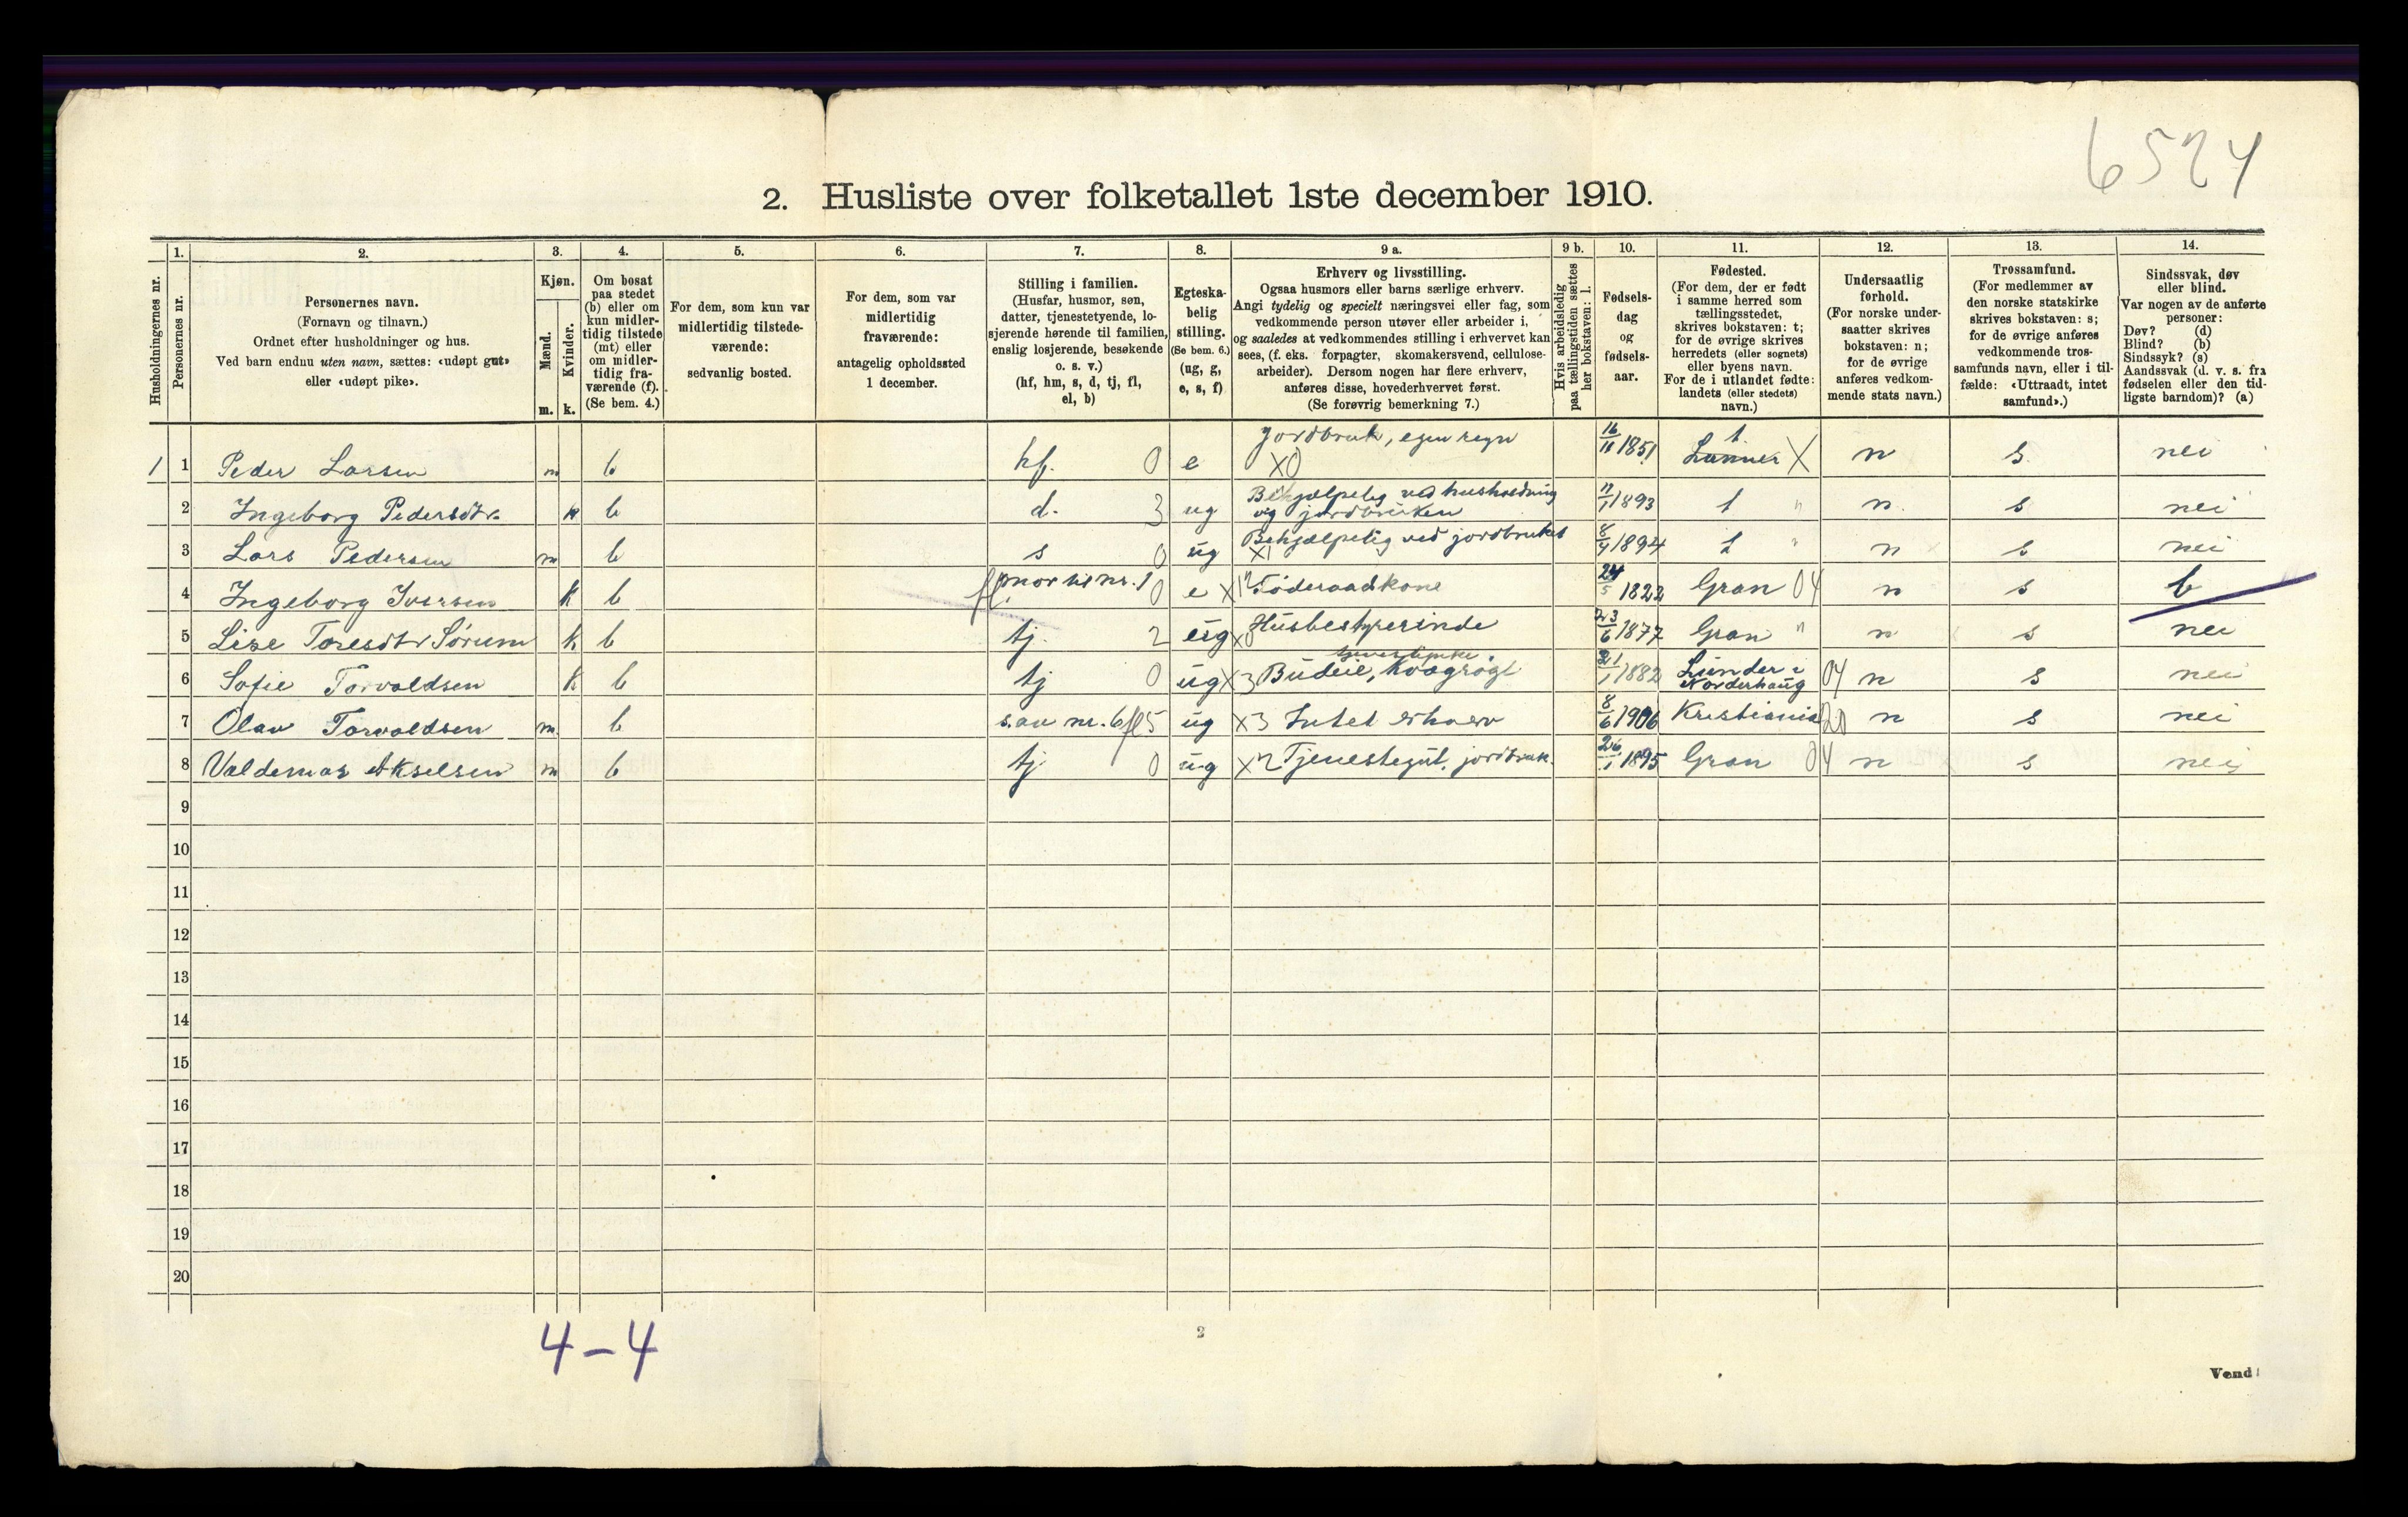 6524
2. Husliste over folketallet 1ste december 1910.
Husholdningernes nr.
1.
Personernes nr.
2.
Personernes navn.
(Fornavn og tilnavn.)
Ordnet efter husholdninger og hus.
Ved barn endnu uten navn, sættes: «udøpt gut»
eller «udøpt pike».
3.
Kjøn.
Mænd.
Kvinder.
m. k.
4.
Om bosat
paa stedet
(b) eller om
kun midler-
tidig tilstede
(mt) eller
om midler-
tidig fra-
værende (f).
(Se bem. 4.)
5.
For dem, som kun var
midlertidig tilstede-
værende:
sedvanlig bosted.
6.
For dem, som var
midlertidig
fraværende:
antagelig opholdssted
1 december.
7.
Stilling i familien.
(Husfar, husmor, søn,
datter, tjenestetyende, lo-
sjerende hørende til familien,
enslig losjerende, besøkende
o. s. v.)
(hf, hm, s, d, tj, fl,
el, b)
8.
Egteska-
belig
stilling.
(Se bem. 6.)
(ug, g,
e, s, f)
9 a.
Erhverv og livsstilling.
Ogsaa husmors eller barns særlige erhverv.
Angi tydelig og specielt næringsvei eller fag, som
vedkommende person utøver eller arbeider i,
og saaledes at vedkommendes stilling i erhvervet kan
sees, (f. eks. forpagter, skomakersvend, cellulose-
arbeider). Dersom nogen har flere erhverv,
anføres disse, hovederhvervet først.
(Se forøvrig bemerkning 7.)
9 b.
Hvis arbeidsledig
paa tællingstiden sættes
her bokstaven: l.
10.
Fødsels-
dag
og
fødsels-
aar.
11.
Fødested.
(For dem, der er født
i samme herred som
tællingsstedet,
skrives bokstaven: t;
for de øvrige skrives
herredets (eller sognets)
eller byens navn.
For de i utlandet fødte:
landets (eller stedets)
navn.)
12.
Undersaatlig
forhold.
(For norske under-
saatter skrives
bokstaven: n;
for de øvrige
anføres vedkom-
mende stats navn.)
13.
Trossamfund.
(For medlemmer av
den norske statskirke
skrives bokstaven: s;
for de øvrige anføres
vedkommende tros-
samfunds navn, eller i til-
fælde: «Uttraadt, intet
samfund».)
14.
Sindssvak, døv
eller blind.
Var nogen av de anførte
personer:
Døv? (d)
Blind? (b)
Sindssyk? (s)
Aandssvak (d. v. s. fra
fødselen eller den tid-
ligste barndom)? (a)
1 1 Peder Larsen m b hf. 0 e Jordbruk, egen regn X0 16/11 1851 t Lunner X n s. nei
2 Ingeborg Pedersdtr. k b d. 3 ug Behjælpelig ved husholdning og jordbruken 11/1 1893 t " n s nei
3 Lars Pedersen m b s 0 ug Behjælpelig ved jordbruket X1 8/4 1894 t " n s nei
4 Ingeborg Iversen k b fl. mor til nr. 1 0 e X Föderaadskone 24/5 1822 Gran 04 n s b
5 Lise Toresdtr Sørum k b tj. 2 ug X0 Husbestyrerinde 23/6 1877 Gran " n s nei
6 Sofie Torvaldsen k b tj 0 ug X3 Budeie, Kvægrøgt 21/1 1882 Lunder i Norderhaug 04 n s nei
7 Olav Torvaldsen m. b s. av nr. 6 fl 5 ug X3 Intet erhverv 8/6 1906 Kristiania 20 n s nei
8 Valdemar Akselsen m b tj. 0 ug X2 Tjenestegut, jordbruk. 26/1 1895 Gran 04 n s nei
9
10
11
12
13
14
15
16
17
18
19
20
4-4
2
Vend!